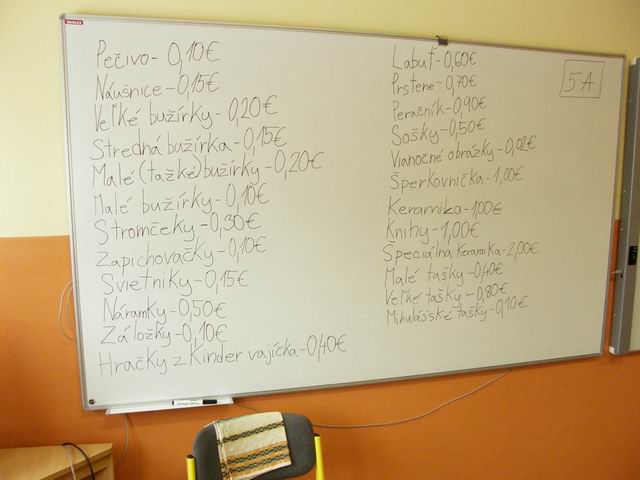 Pečivo-0,10€
Náušnice-0,15€
Veľké bužírky-0,20€
Stredná bužírka-0,15€
Malé (tažké) bužírky-0,20€
Malé bužírky-0,10€
Stromčeky-0,30€
Zapichovačky-0,10€
Svietniky-0,15€
Náramky-0,50€
Záložky-0,10€
Hračky z Kinder vajíčka-0,40€
Labuť-0,60€
Prstene-0,70€
Peračník-0,90€
Sošky-0,50€
Vianočné obrázky-0,02€
Šperkovnička-1,00€
Keramika-1,00€
Knihy-1,00€
Špeciálna keramika-2,00€
Malé tašky-0,40€
Veľké tašky-0,80€
Mihulášské tašky-0,10€
5A